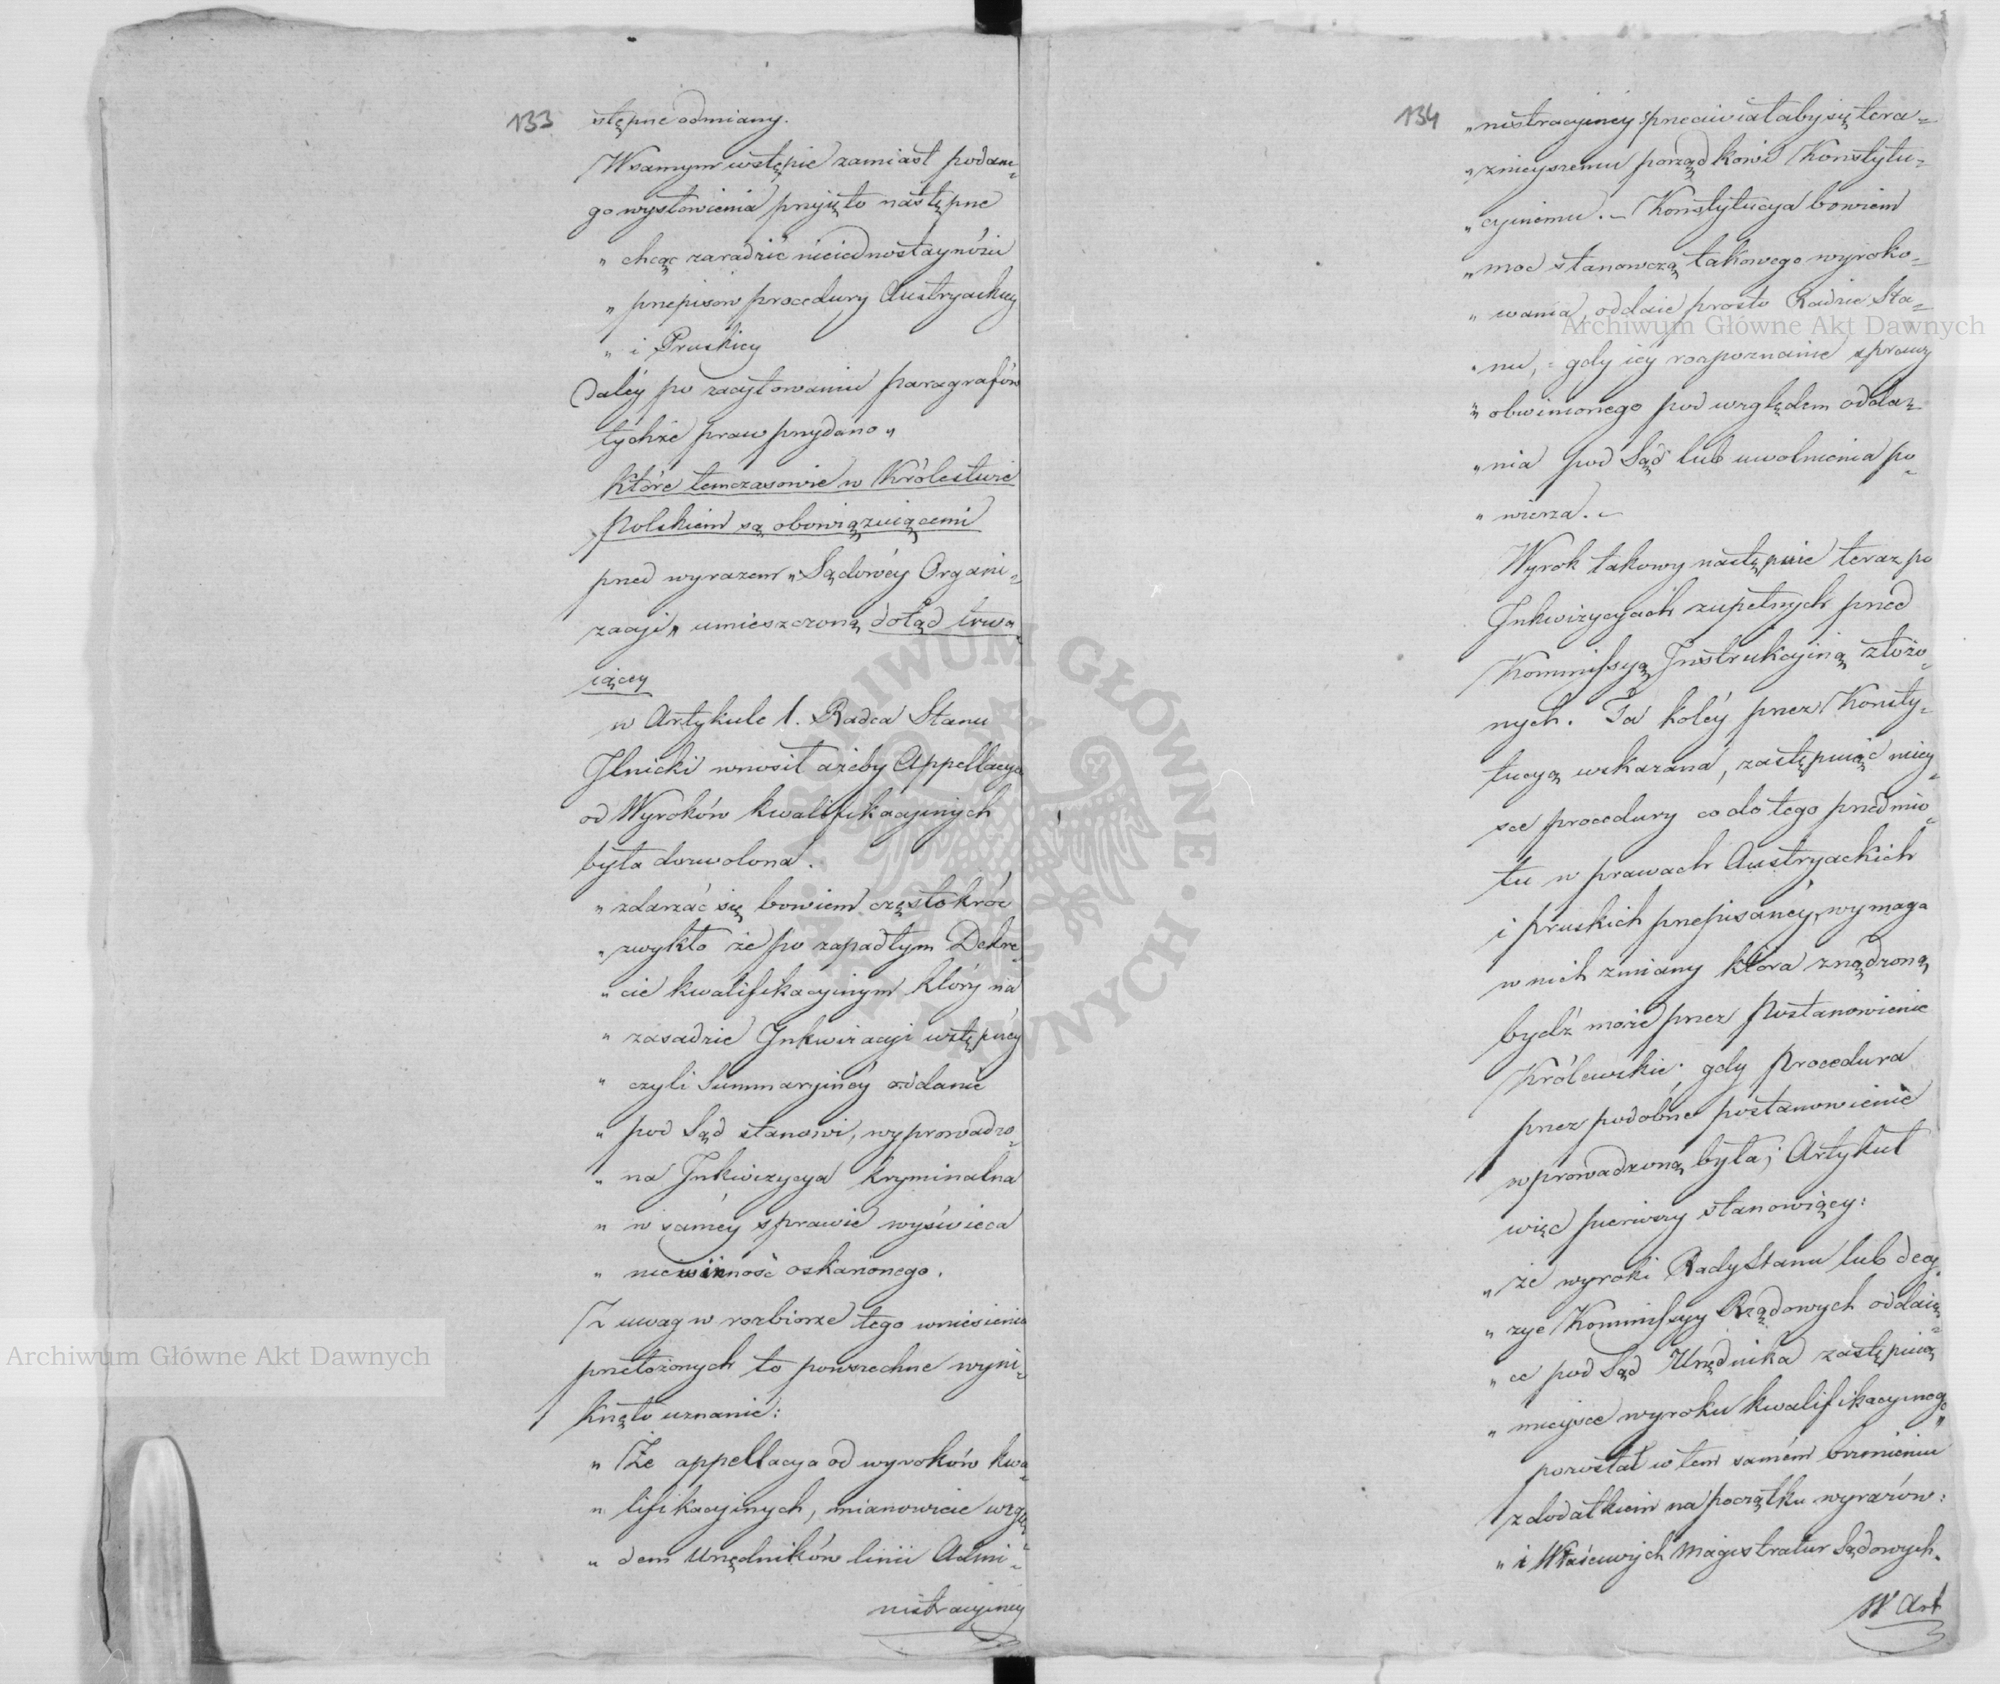 133
stępne odmiany.
W samym wstępie zamiast podane-
go wysłowienia przyięto następne
„ chcąc zaradzić nieiednostayności
„ przepisow procedury Austryackiey
„ i Pruskiey
Daléy po zacytowaniu paragrafów
tychże praw przydano „
które tymczasowie w Królestwie
Polskiem są obowiązuiącemi
przed wyrazem „Sądowéy Organi-
zacyi„ umieszczoną dotąd trwa-
iącey
w Artykule 1. Radca Stanu
Ilnicki wnosił ażeby Appellacya
od Wyroków kwalifikacyinych
była dozwolona.
„ zdarzać się bowiem częstokróć
„ zwykło że po zapadłym Dekre-
„ cie kwalifikacyinym który na
„ zasadzie Inkwizycyi wstępnéy
„ czyli Summaryinéy oddanie
„ pod Sąd stanowi, wyprowadzo-
„ na Inkwizycya kryminalna
„ w saméy sprawie wyświeca
„ niewinność oskarżonego.
Z uwag w rozbiorze tego wniesienia
przełożonych to powszechne wyni-
knęło uznanie:
„ Że appellacya od wyroków kwa-
„ lifikacyinych, mianowicie wzglę-
„ dem Urzędników linii Admi-
nistracyiney
134
„ nistracyiney sprzeciwiałaby się tera-
„ znieyszemu porządkowi Konstytu-
„ cyinemu. – Konstytucya bowiem
„ moc stanowczą takowego wyroko-
„ wania, oddaie prosto Radzie Sta-
„ nu, gdy iey rozpoznanie sprawy
„ obwinionego pod względem odda-
„ nia pod Sąd lub uwolnienia po-
„ wierza. –
Wyrok takowy następuie teraz po
Inkwizycyach zupełnych przed
Kommissyą Instrukcyiną złożo-
nych. Ta koléy przez Konsty-
tucyą wskazana, zastępuiąc miey-
sce procedury co do tego przedmio-
tu w prawach Austryackich
i pruskich przepisanéy, wymaga
w nich zmiany która zrządzoną
bydź może przez Postanowienie
Królewskie. gdy Procedura
przez podobne postanowienie
wprowadzoną była; Artykuł
więc pierwszy stanowiący:
„ że wyroki Rady Stanu lub decy-
„ zye Kommissyy Rządowych oddaią-
„ ce pod Sąd Urzędnika zastępuią
„ mieysce wyroku kwalifikacyinego„
pozostał w tem samém brzmieniu
z dodatkiem na początku wyrazów:
„ i Właściwych Magistratur Sądowych.
W Art
Archiwum Główne Akt Dawnych
Archiwum Główne Akt Dawnych
ARCHIWUM GŁÓWNE AKT DAWNYCH